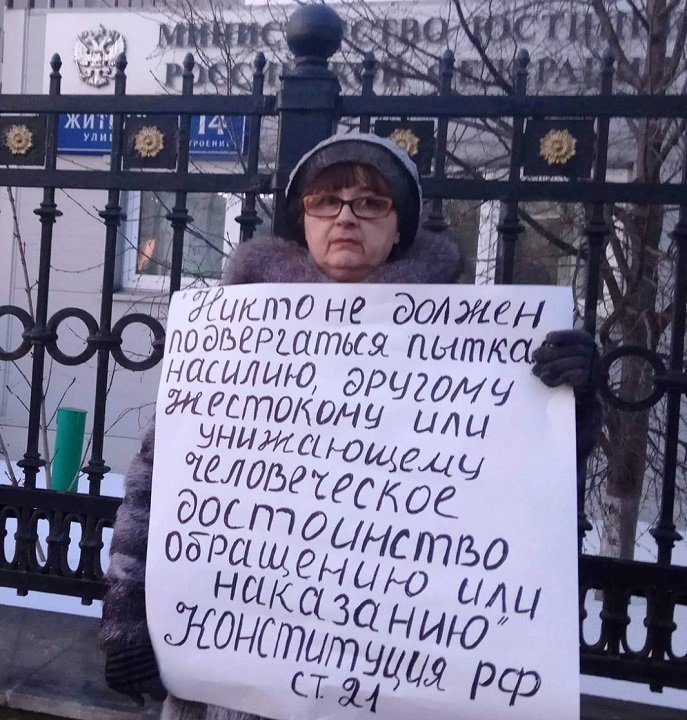 МИНИСТЕРСТВО ЮСТИЦИИ
РОССИЙСКОЙ ФЕДЕРАЦИИ
ЖИТ
УЛИ
14
СТРОЕНИЕ
"Никто не должен
подвергаться пытка
насилию, другому
жестокому или
унижающему
человеческое
достоинство
обращению или
наказанию"
Конституция РФ
ст. 21